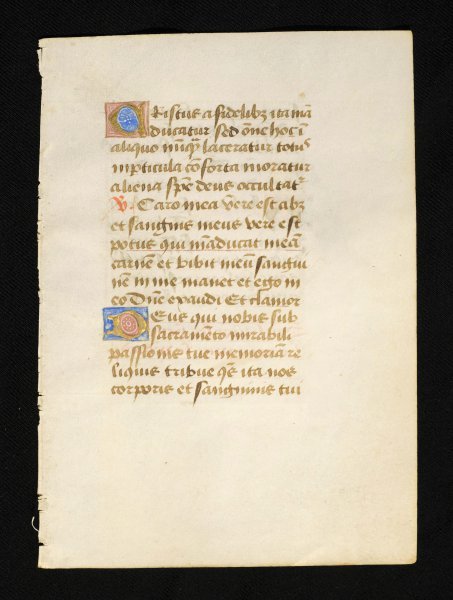 Cristus a fidelibꝫ ita mā
ducatur sed om̄e hoc ī
aliquo nūqꝫ laceratur totꝰ
in pticula cōforta moratur
aliena spē deus occultatͬ
V. Caro mea vere est cibꝫ
et sanguis meus vere est
potus qui māducat meā
carnē et bibit meū sangui
nē in me manet et ego in
eo Dn̄e exaudi Et clamor
Deus qui nobis sub
sacramēto mirabili
passionis tue memoriā re
liquis tribue qs̄ ita nos
corporis et sanguinis tui